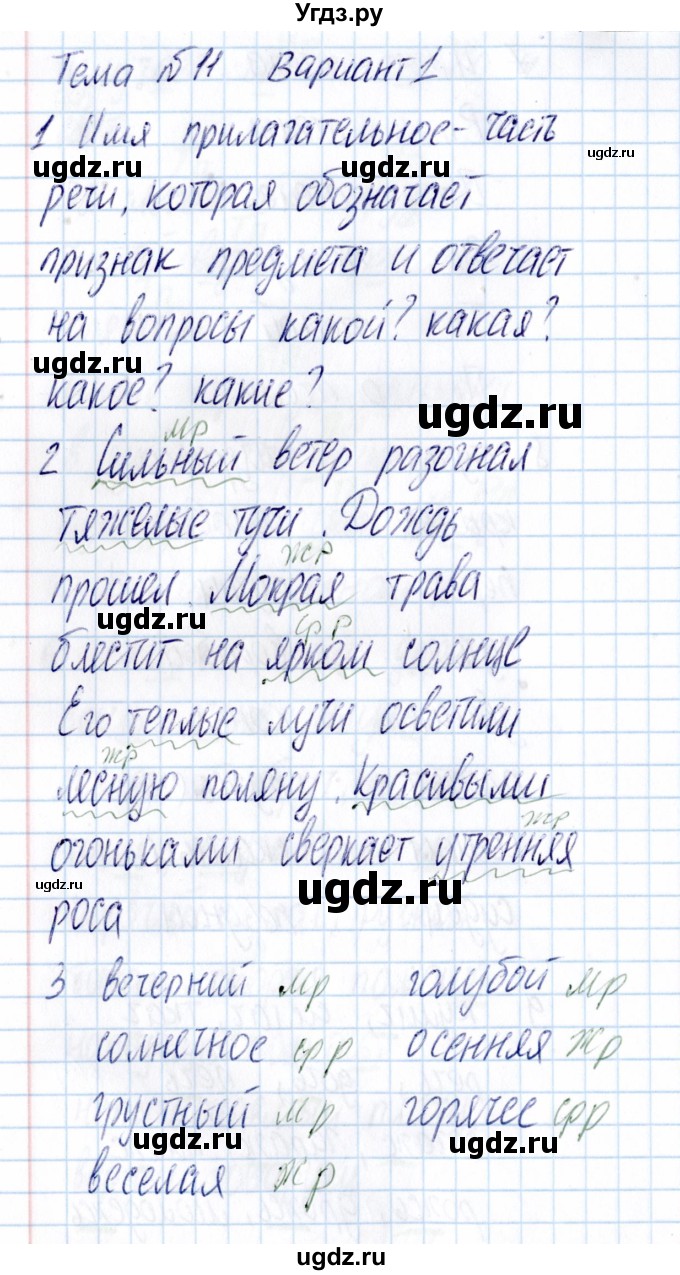 Угдз.ру
Тема №11 Вариант 1
1 Имя прилагательное- часть
ugdz.ru ugdz.ru
речи, которая обозначает
признак предмета и отвечает
на вопросы какой? какая?
ugdz.ru
какое? какие?
ugdz.ru
мр
2 Сильный ветер разогнал
тяжелые тучи. Дождь
жр
прошел. Мокрая трава
ugdz.ru
ср р
блестит на ярком солнце
Его теплые лучи осветили
жр
лесную поляну. Красивыми
жр
огоньками сверкает утренняя
ugdz.ru ugdz.ru
роса
3 вечерний мр голубой мр
солнечное ср р осенняя жр
грустный мр горячее ср р
ugdz.ru ugdz.ru
веселая жр
ugdz.ru